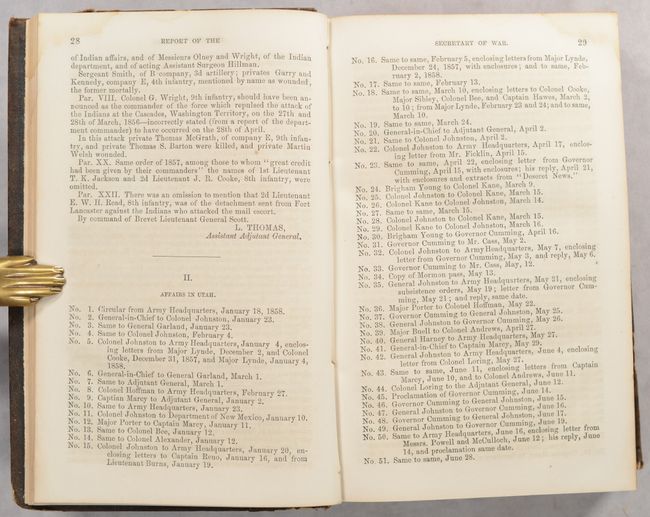 28 REPORT OF THE
of Indian affairs, and of Messieurs Olney and Wright, of the Indian
department, and of acting Assistant Surgeon Hillman.
Sergeant Smith, of B company, 3d artillery; privates Garry and
Kennedy, company E, 4th infantry, mentioned by name as wounded,
the former mortally.
Par. VIII. Colonel G. Wright, 9th infantry, should have been an-
nounced as the commander of the force which repulsed the attack of
the Indians at the Cascades, Washington Territory, on the 27th and
28th of March, 1856—incorrectly stated (from a report of the depart-
ment commander) to have occurred on the 28th of April.
In this attack private Thomas McGrath, of company E, 9th infan-
try, and private Thomas S. Barton were killed, and private Martin
Welsh wounded.
Par. XX. Same order of 1857, among those to whom "great credit
had been given by their commanders" the names of 1st Lieutenant
T. K. Jackson and 2d Lieutenant J. R. Cooke, 8th infantry, were
omitted.
Par. XXII. There was an omission to mention that 2d Lieutenant
E. W. H. Read, 8th infantry, was of the detachment sent from Fort
Lancaster against the Indians who attacked the mail escort.
By command of Brevet Lieutenant General Scott.
L. THOMAS,
Assistant Adjutant General.
II.
AFFAIRS IN UTAH.
No. 1. Circular from Army Headquarters, January 18, 1858.
No. 2. General-in-Chief to Colonel Johnston, January 23.
No. 3. Same to General Garland, January 23.
No. 4. Same to Colonel Johnston, February 4.
No. 5. Colonel Johnston to Army Headquarters, January 4, enclos-
ing letters from Major Lynde, December 2, and Colonel
Cooke, December 31, 1857, and Major Lynde, January 4,
1858.
No. 6. General-in-Chief to General Garland, March 1.
No. 7. Same to Adjutant General, March 1.
No. 8. Colonel Hoffman to Army Headquarters, February 27.
No. 9. Captian Marcy to Adjutant General, January 2.
No. 10. Same to Army Headquarters, January 23.
No. 11. Colonel Johnston to Department of New Mexico, January 10.
No. 12. Major Porter to Captain Marcy, January 11.
No. 13. Same to Colonel Bee, January 12.
No. 14. Same to Colonel Alexander, January 12.
No. 15. Colonel Johnston to Army Headquarters, January 20, en-
closing letters to Captain Reno, January 16, and from
Lieutenant Burns, January 19.
SECRETARY OF WAR. 29
No. 16. Same to same, February 5, enclosing letters from Major Lynde,
December 24, 1857, with enclosures; and to same, Feb-
ruary 2, 1858.
No. 17. Same to same, February 13.
No. 18. Same to same, March 10, enclosing letters to Colonel Cooke,
Major Sibley, Colonel Bee, and Captain Hawes, March 2,
to 10; from Major Lynde, February 23 and 24; and to same,
March 10.
No. 19. Same to same, March 24.
No. 20. General-in-Chief to Adjutant General, April 2.
No. 21. Same to Colonel Johnston, April 2.
No. 22. Colonel Johnston to Army Headquarters, April 17, enclos-
ing letter from Mr. Ficklin, April 15.
No. 23. Same to same, April 22, enclosing letter from Governor
Cumming, April 15, with enclosures; his reply, April 21,
with enclosures and extracts from "Deseret News."
No. 24. Brigham Young to Colonel Kane, March 9.
No. 25. Colonel Johnston to Colonel Kane, March 15.
No. 26. Colonel Kane to Colonel Johnston, March 14.
No. 27. Same to same, March 15.
No. 28. Colonel Johnston to Colonel Kane, March 15.
No. 29. Colonel Kane to Colonel Johnston, March 16.
No. 30. Brigham Young to Governor Cumming, April 16.
No. 31. Governor Cumming to Mr. Cass, May 2.
No. 32. Colonel Johnston to Army Headquarters, May 7, enclosing
letter from Governor Cumming, May 3, and reply, May 6.
No. 33. Governor Cumming to Mr. Cass, May, 12.
No. 34. Copy of Mormon pass, May 13.
No. 35. General Johnston to Army Headquarters, May 21, enclosing
subsistence orders, May 19; letter from Governor Cum-
ming, May 21; and reply, same date.
No. 36. Major Porter to Colonel Hoffman, May 22.
No. 37. Governor Cumming to General Johnston, May 25.
No. 38. General Johnston to Governor Cumming, May 26.
No. 39. Major Buell to Colonel Andrews, April 27.
No. 40. General Harney to Army Headquarters, May 27.
No. 41. General-in-Chief to Captain Marcy, May 29.
No. 42. General Johnston to Army Headquarters, June 4, enclosing
letter from Colonel Loring, May 27.
No. 43. Same to same, June 11, enclosing letters from Captain
Marcy, June 10, and to Colonel Andrews, June 11.
No. 44. Colonel Loring to the Adjutant General, June 12.
No. 45. Proclamation of Governor Cumming, June 14.
No. 46. Governor Cumming to General Johnston, June 15.
No. 47. General Johnston to Governor Cumming, June 16.
No. 48. Governor Cumming to General Johnston, June 17.
No. 49. General Johnston to Governor Cumming, June 19.
No. 50. Same to Army Headquarters, June 16, enclosing letter from
Messrs. Powell and McCulloch, June 12; his reply, June
14, and proclamation same date.
No. 51. Same to same, June 28.